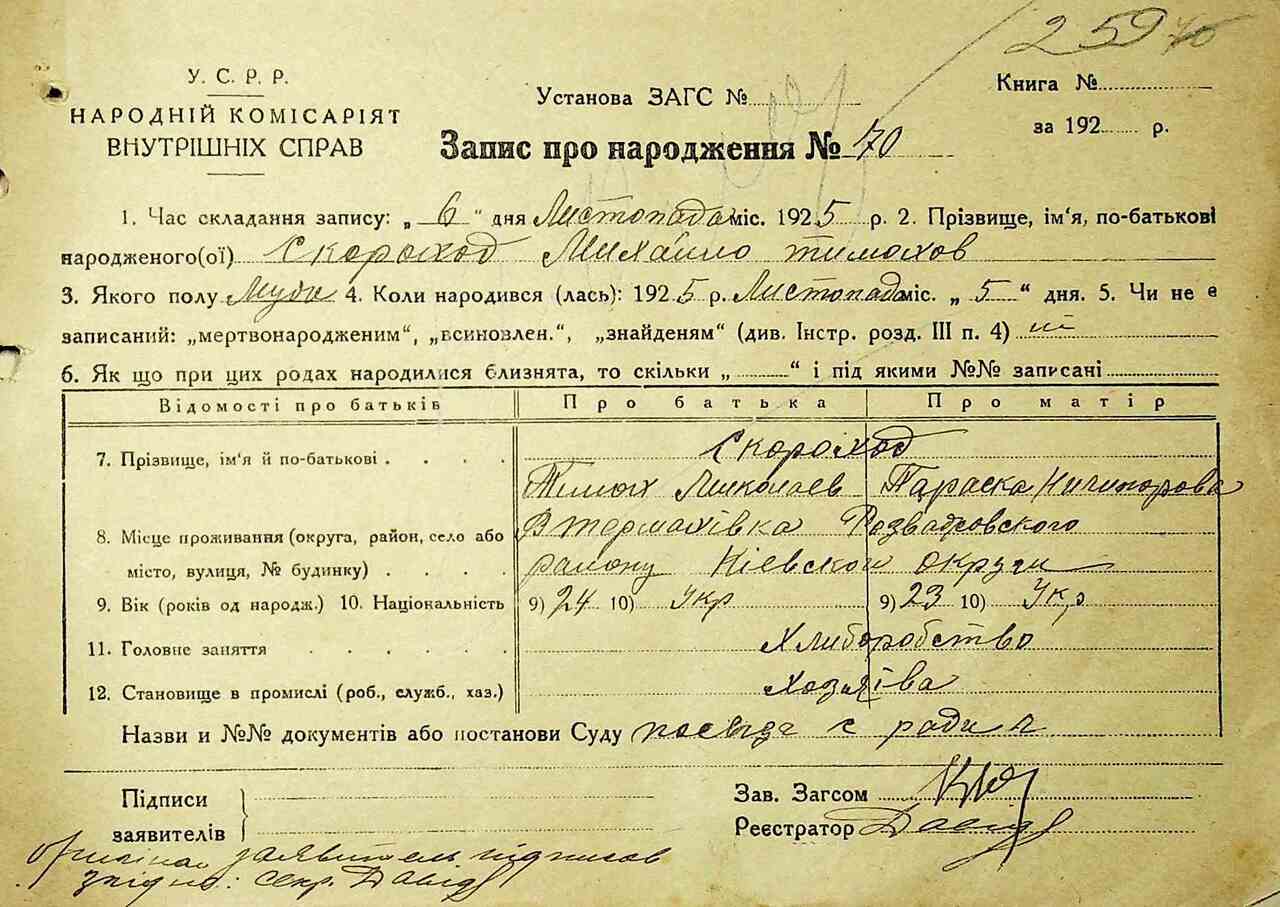 259
У. С. Р. Р.
НАРОДНІЙ КОМІСАРІЯТ
ВНУТРІШНІХ СПРАВ
Установа ЗАГС №
Книга №
за 192 р.
Запис про народження № 70
1. Час складання запису: „ 6 " дня Листопада міс. 1925 р. 2. Прізвище, ім'я, по-батькові
народженого(ої) Скороход Михайло тимохов
3. Якого полу Муж 4. Коли народився (лась): 1925 р. Листопад міс. „ 5 " дня. 5. Чи не є
записаний: „мертвонародженим", „всиновлен.", „знайденям" (див. Інстр. розд. III п. 4) ні
6. Як що при цих родах народилися близнята, то скільки „ " і під якими №№ записані
Відомості про батьків Про батька Про матір
7. Прізвище, ім'я й по-батькові . . . . Скороход
Тимох Миколаев Параска Ничипорова
8. Місце проживання (округа, район, село або Термахівка Розважовского
місто, вулиця, № будинку) . . . . району Кіевской округи
9. Вік (років од народж.) 10. Національність 9) 24 10) Укр 9) 23 10) Укр
11. Головне заняття . . . . . . Хлиборобство
12. Становище в промислі (роб., служб., хаз.) хозяіва
Назви и №№ документів або постанови Суду посвид с ради
Підписи
заявителів
Зав. Загсом
Реєстратор Давид
заявитель підписов
згідно: секр. Давид